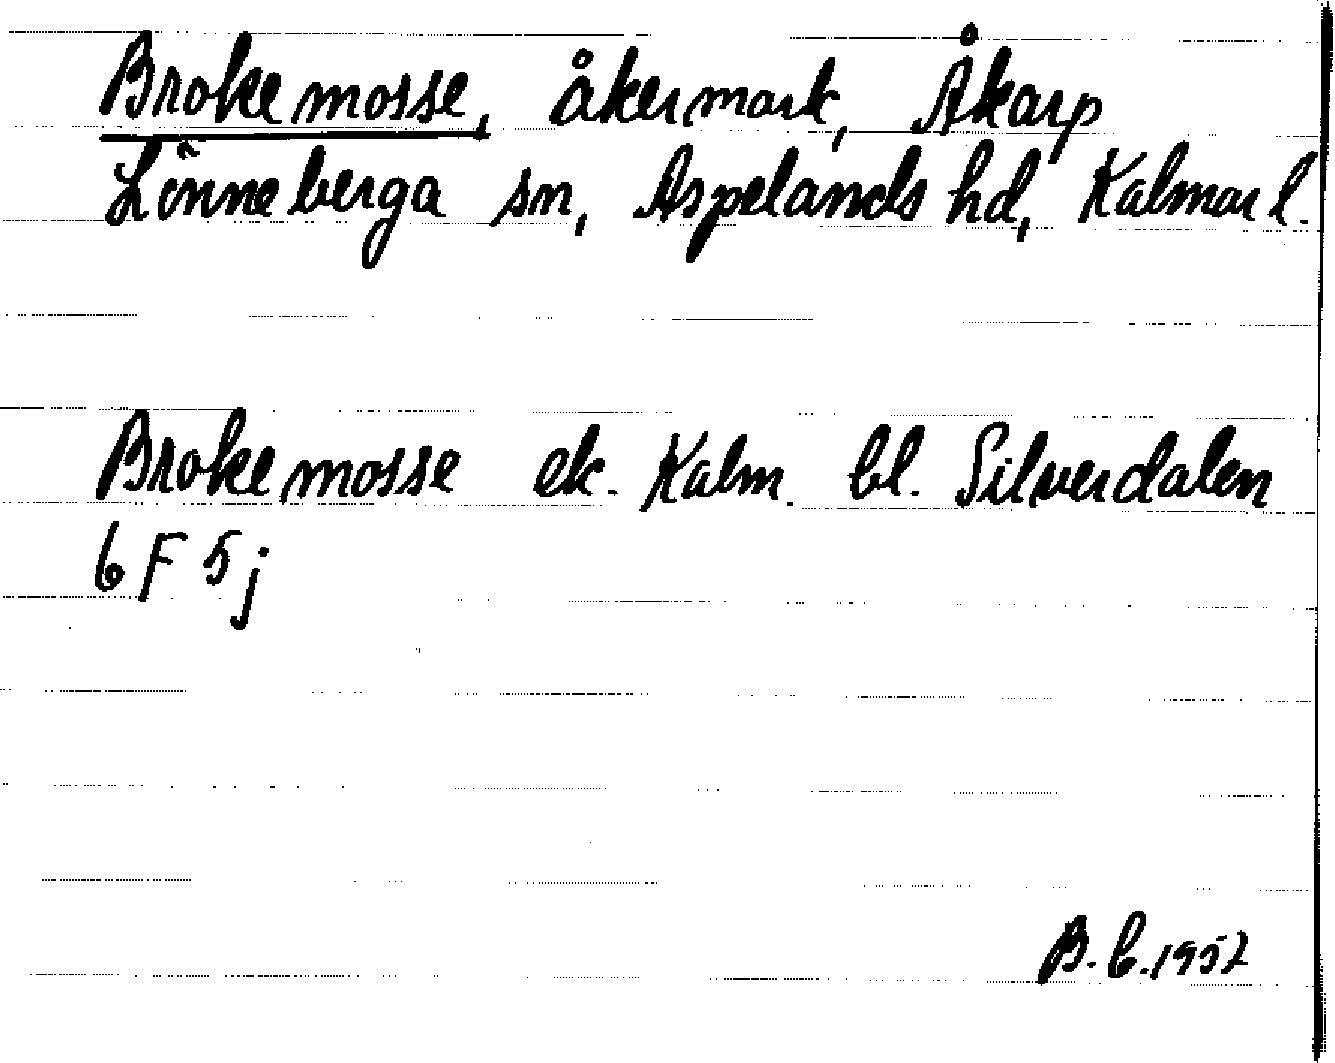 Brokemosse, åkermark, Åkarp
Lönneberga sn, Aspelands hd, Kalmar l.
Brokemosse ek. Kalm. bl. Silverdalen
6 F 5 j
B.E. 1952